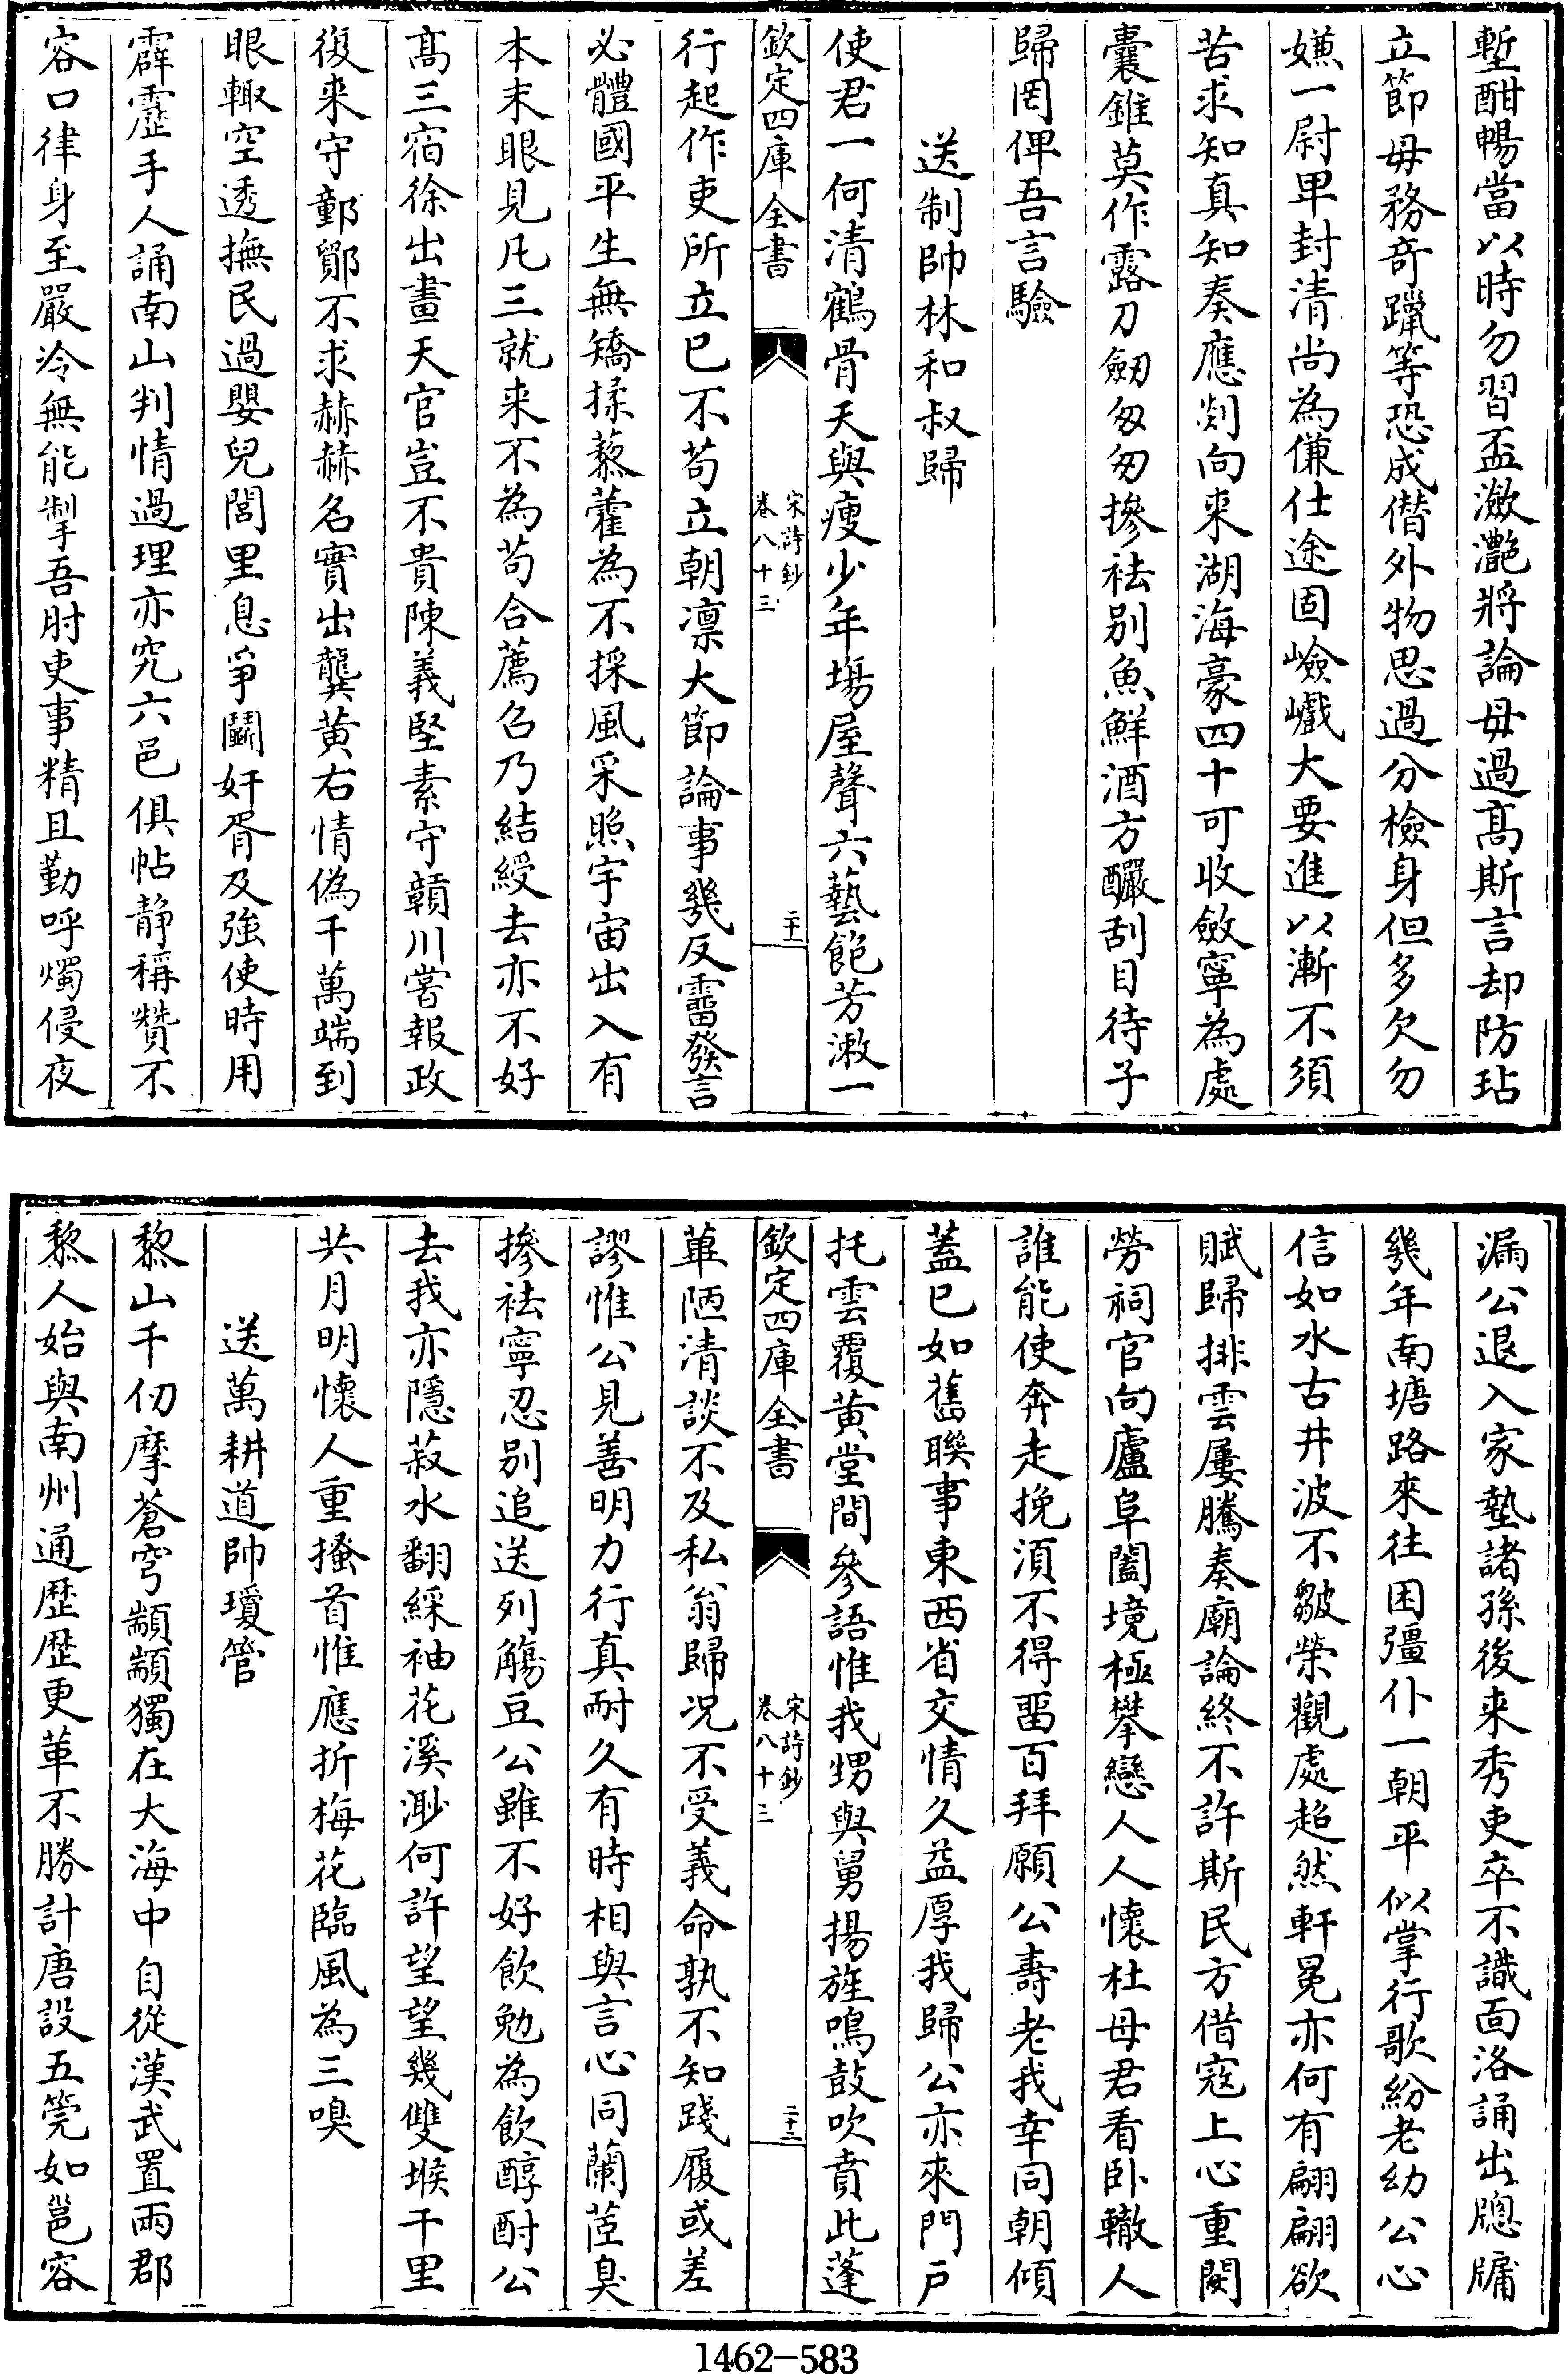 塹酣暢當以時勿習盃瀲灔將論毋過髙斯言却防玷
立節毋務奇躐等恐成僭外物思過分檢身但多欠勿
嫌一尉卑封清尚為傔仕途固嶮巇大要進以漸不須
苦求知真知奏應剡向来湖海豪四十可收斂寧為處
囊錐莫作露刀劒匆匆摻袪别魚鮮酒方釅刮目待子
歸罔俾吾言驗
送制帥林和叔歸
使君一何清鶴骨天與瘦少年塲屋聲六藝飽芳漱一
欽定四庫全書
宋詩鈔
卷八十三
二十一
行起作吏所立已不苟立朝凛大節論事幾反霤發言
必體國平生無矯揉藜藿為不採風采照宇宙出入有
本末眼見凡三就来不為苟合薦召乃結綬去亦不好
髙三宿徐出晝天官豈不貴陳義堅素守頴川嘗報政
復来守鄞鄮不求赫赫名實出龔黄右情偽千萬端到
眼輙空透撫民過嬰兒閭里息爭鬭奸胥及強使時用
霹靂手人誦南山判情過理亦究六邑俱帖静稱贊不
容口律身至嚴冷無能掣吾肘吏事精且勤呼燭侵夜
漏公退入家塾諸孫後来秀吏卒不識面洛誦出牎牖
幾年南塘路來往困彊仆一朝平似掌行歌紛老幼公心
信如水古井波不皺榮觀處超然軒冕亦何有翩翩欲
賦歸排雲屢騰奏廟論終不許斯民方借寇上心重閔
勞祠官向廬阜闔境極攀戀人人懷杜母君看卧轍人
誰能使奔走挽湏不得畱百拜願公壽老我幸同朝傾
蓋已如舊聨事東西省交情久益厚我歸公亦來門戶
托雲覆黄堂間參語惟我甥與舅揚旌鳴鼓吹賁此蓬
欽定四庫全書
宋詩鈔
卷八十三
二十二
蓽陋清談不及私翁歸况不受義命孰不知踐履或差
謬惟公見善明力行真耐久有時相與言心同蘭茝臭
摻袪寧忍别追送列觴豆公雖不好飲勉為飲醇酎公
去我亦隱菽水翻綵袖花溪渺何許望望幾雙堠千里
共月明懷人重搔首惟應折梅花臨風為三嗅
送萬耕道帥瓊管
黎山千仞摩蒼穹顓顓獨在大海中自從漢武置兩郡
黎人始與南州通歷歷更革不勝計唐設五筦如邕容
1462-583